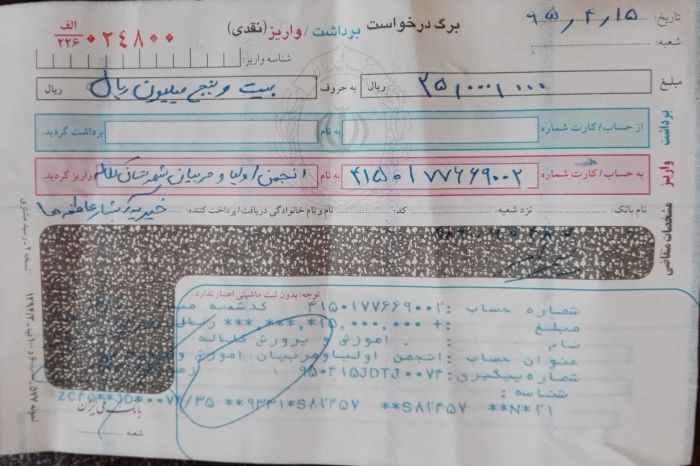 برگ درخواست برداشت / واریز (نقدی)
تاریخ: ۹۵,۴,۱۵
الف ۲۲۶ ۰۲۴۸۰۰
شعبه:
شناسه واریز:
مبلغ ۲۵,۰۰۰,۰۰۰ ریال به حروف بیست و پنج میلیون ریال ریال
برداشت
از حساب / کارت شماره به نام برداشت گردید.
واریز
به حساب / کارت شماره ۴۱۵۰۱۷۷۶۶۹۰۰۲ به نام انجمن اولیا و مربیان شهرستان کلاله واریز گردید.
مشخصات متقاضی
نام بانک: نزد شعبه: کد: نام و نام خانوادگی دریافت / پرداخت کننده:
توجه: بدون ثبت ماشینی اعتبار ندارد
شماره حساب : ۴۱۵۰۱۷۷۶۶۹۰۰۲ کدشعبه
مبلغ : ریال
نام : آموزش و پرورش کلاله
عنوان حساب : انجمن اولیاومربیان اموزش و
شماره پیگیری: ۹۵۰۴۱۵JDTJ۰۰۷۴
شناسه :
بانک ملی ایران
شعبه